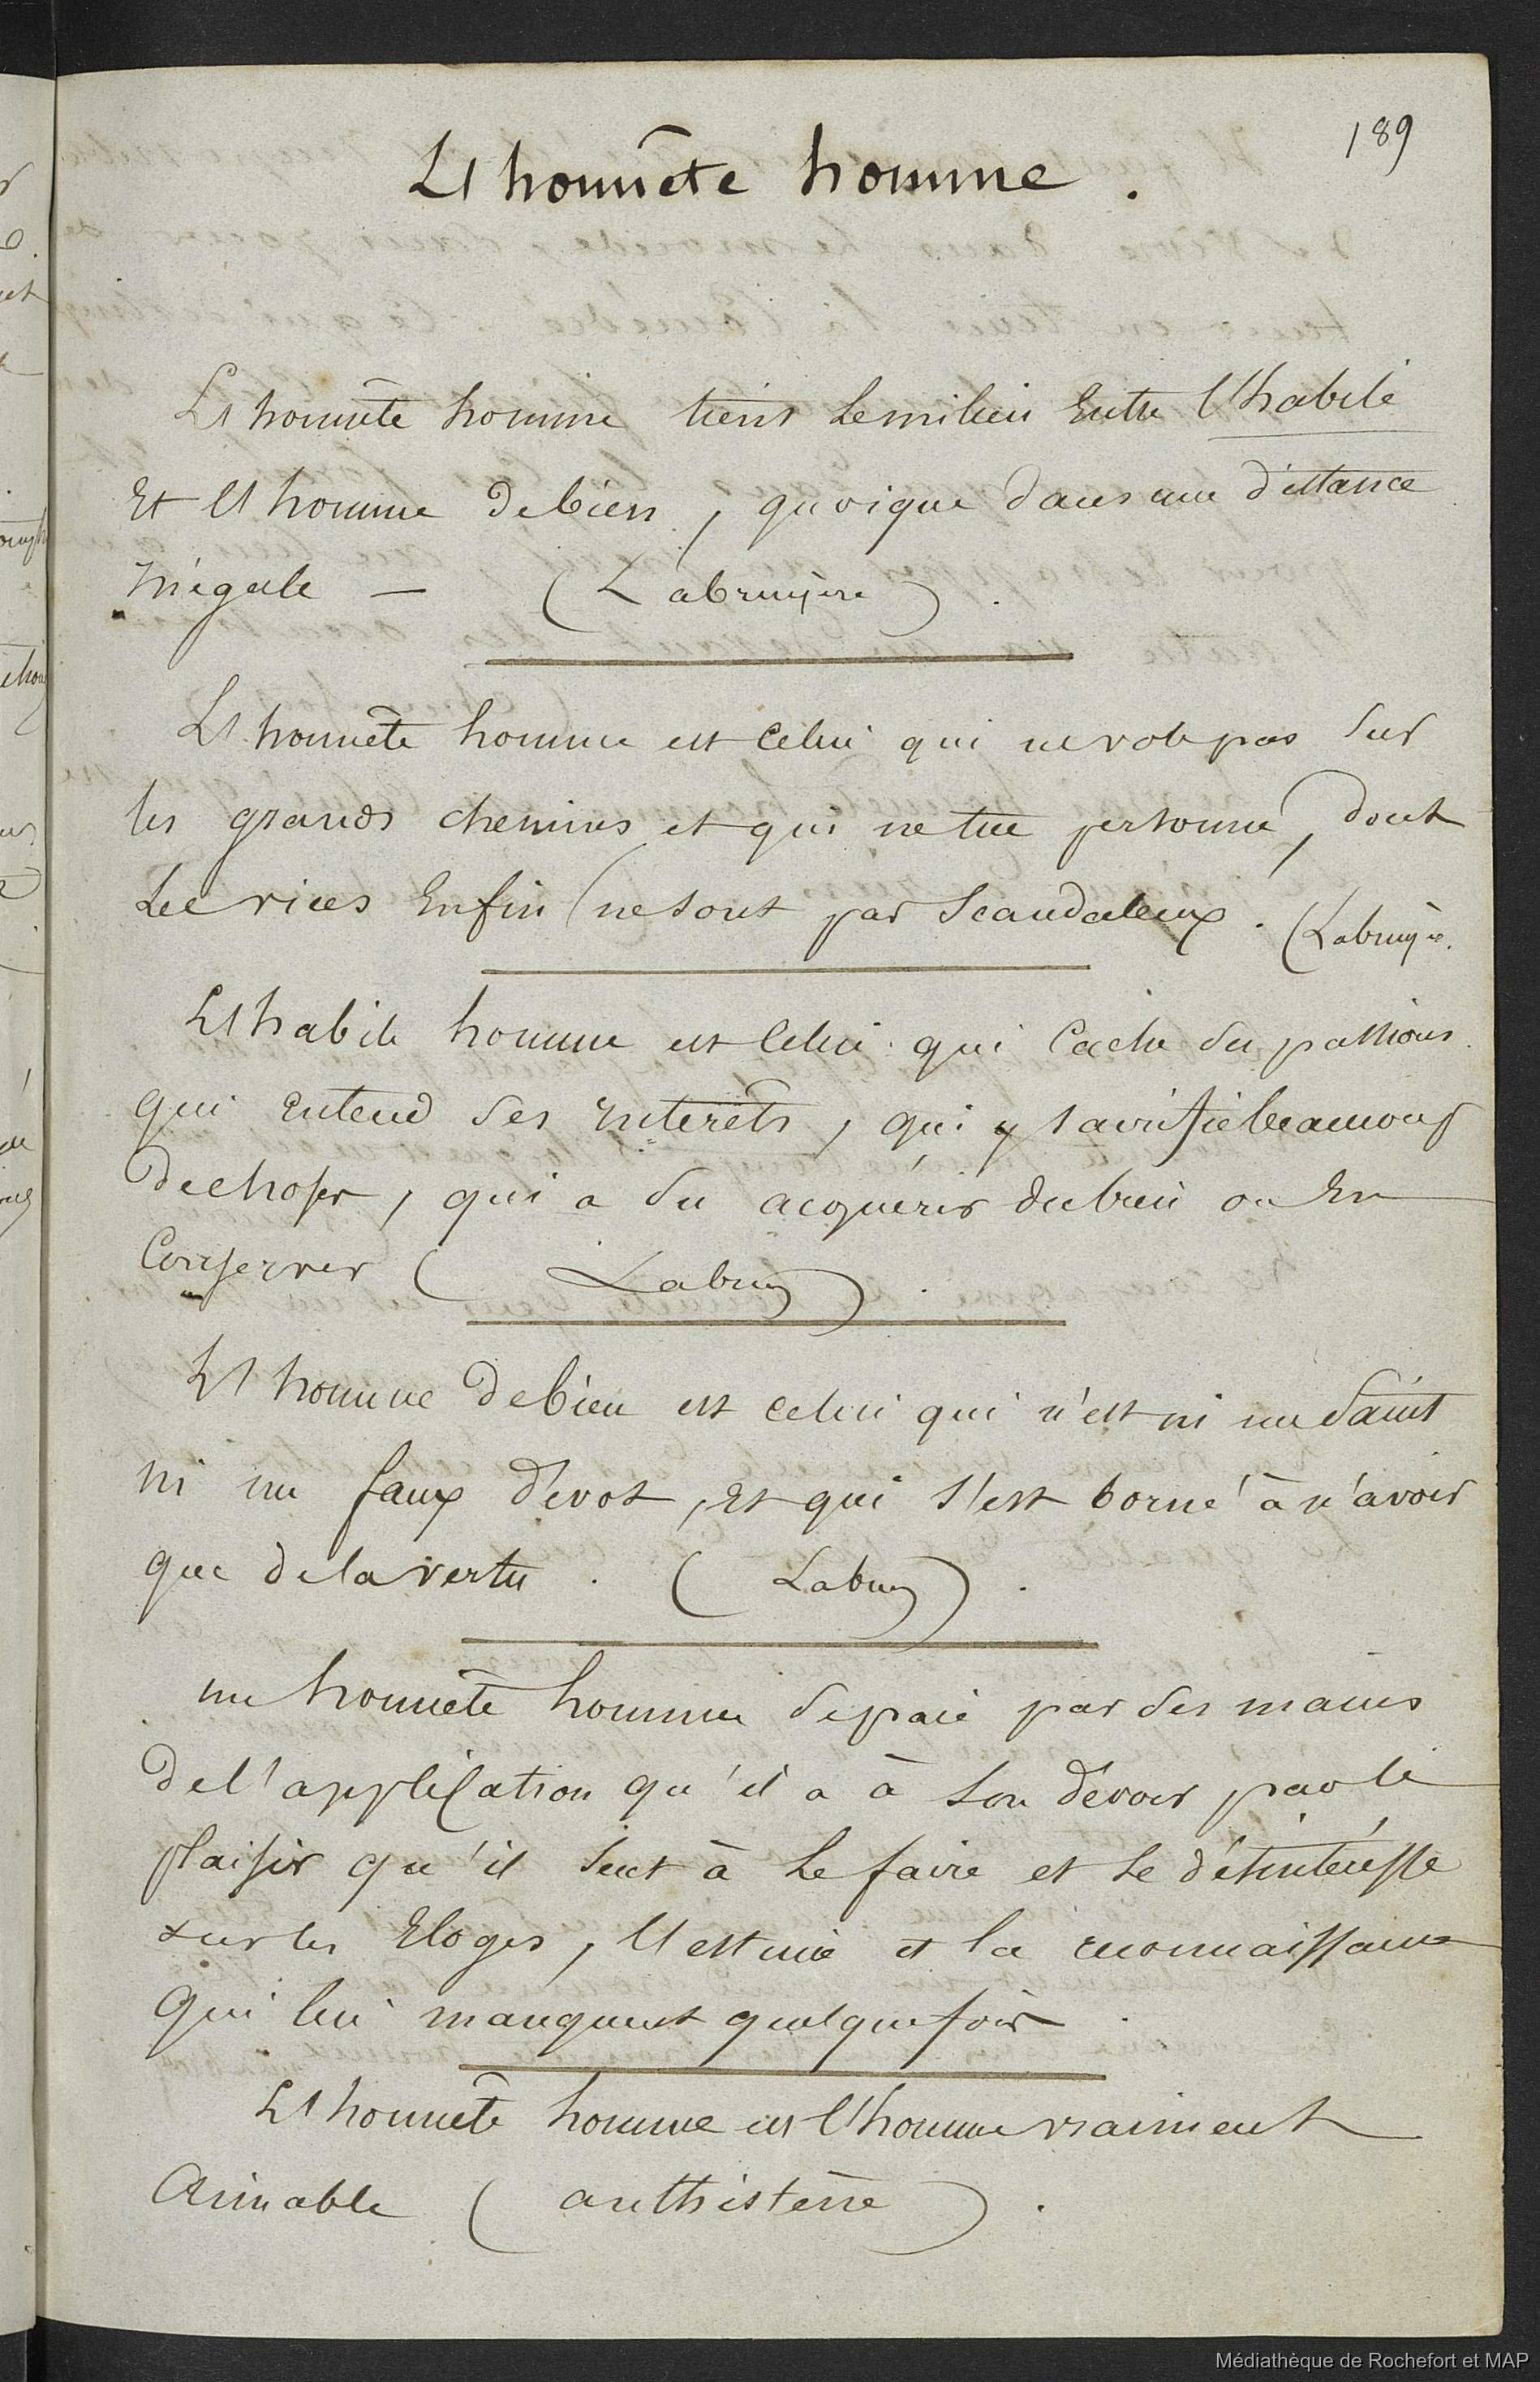 189
L'honnête homme.
L'honnête homme tient le milieu Entre l'habile
Et l'homme de bien, quoique dans une distance
inégale — (Labruyère).
L'honnête homme est celui qui ne vole pas sur
les grands chemins et qui ne tue personne, dont
les vices Enfin ne sont pas scandaleux. (Labruyère.
L'habile homme est celui qui cache ses passions
qui entend ses interêts, qui y sacrifie beaucoup
de choses, qui a su acquérir du bien ou En
Conserver (Labruy).
L'homme de bien est celui qui n'est ni un saint
ni un faux dévot, Et qui s'est borné à n'avoir
que de la vertu. (Labruy).
un honnête homme se paie par ses mains
de l'application qu'il a à son dévoir par le
plaisir qu'il sent à le faire et se désintéresse
sur les Eloges, l'estime et la reconnaissance
qui lui manquent quelquefois.
L'honnête homme est l'homme vraiment
Aimable (anthistène).
Médiathèque de Rochefort et MAP